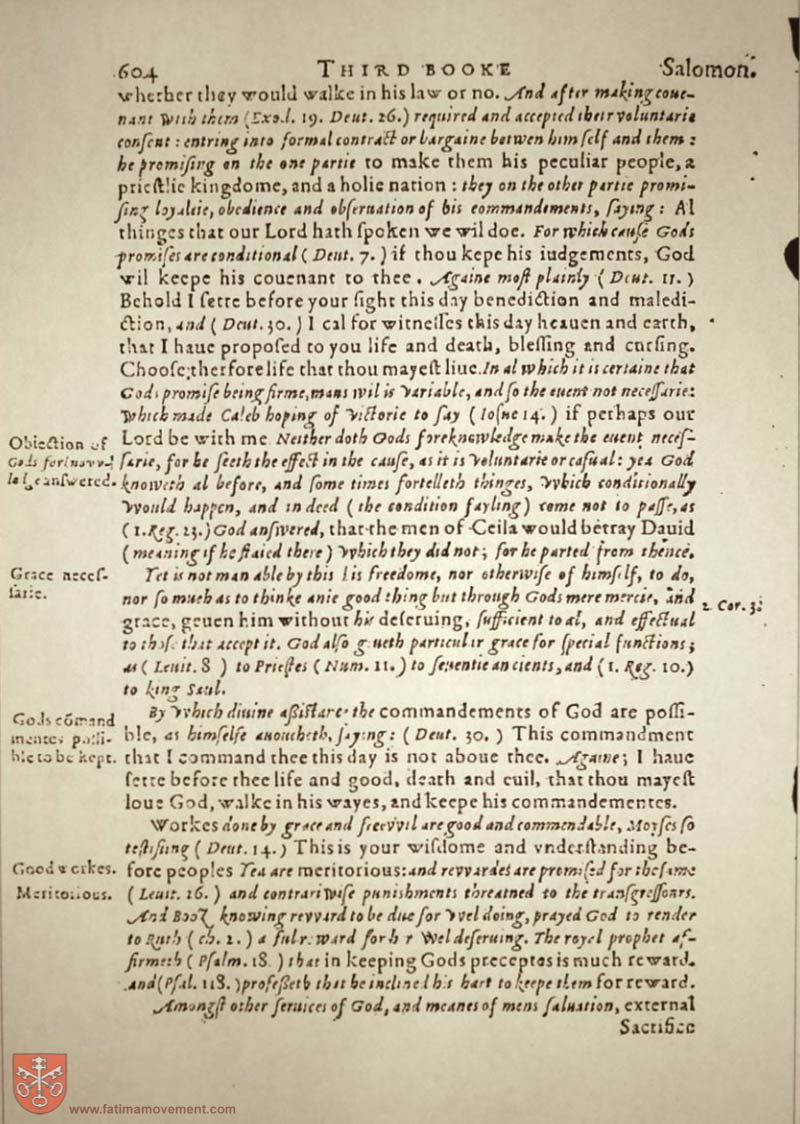 604 THIRD BOOKE Salomon.
whether they would walke in his law or no. And after making coue-
nant with them (Exod. 19. Deut. 26.) required and accepted their voluntarie
consent: entring into formal contract or bargaine betwen himself and them:
he promising on the one partie to make them his peculiar people, a
priestlie kingdome, and a holie nation: they on the other partie promi-
sing loyaltie, obedience and obseruation of his commandements, saying: Al
thinges that our Lord hath spoken we wil doe. For which cause Gods
promises are conditional (Deut. 7.) if thou kepe his iudgements, God
wil keepe his couenant to thee. Againe most plainly (Deut. 11.)
Behold I sette before your sight this day benediction and maledi-
ction, and (Deut. 30.) I cal for witnesses this day heauen and earth,
that I haue proposed to you life and death, blessing and cursing.
Choose therfore life that thou mayest liue. In al which it is certaine that
Gods promise being firme, mans wil is variable, and so the euent not necessarie:
which made Caleb hoping of victorie to say (Iosue 14.) if perhaps our
Lord be with me Neither doth Gods foreknowledge make the euent neces-
sarie, for he seeth the effect in the cause, as it is voluntarie or casual: yea God
knoweth al before, and some times fortelleth thinges, which conditionally
would happen, and indeed (the condition fayling) come not to passe, as
(1. Reg. 23.) God answered, that the men of Ceila would betray Dauid
(meaning if he staied there) which they did not; for he parted from thence.
Obiection of
Gods forknow-
lege answered.
Yet is not man able by this his freedome, nor otherwise of himself, to do,
nor so much as to thinke anie good thing but through Gods mere mercie, and
grace, geuen him without his deseruing, sufficient to al, and effectual
to those that accept it. God also geueth particular grace for special functions;
as (Leuit. 8) to Priestes (Num. 11.) to seuentie ancients, and (1. Reg. 10.)
to king Saul.
Grace neces-
sarie.
2. Cor. 3.
By which diuine assistace the commandements of God are possi-
ble, as himselfe auoucheth, saying: (Deut. 30.) This commandment
that I command thee this day is not aboue thee. Againe; I haue
sette before thee life and good, death and euil, that thou mayest
loue God, walke in his wayes, and keepe his commandementes.
Gods cōmand
mentes possi-
ble to be kept.
Workes done by grace and freewil are good and commendable, Moyses so
testifiing (Deut. 14.) This is your wisdome and vnderstanding be-
fore peoples Yea are meritorious: and rewardes are promised for the same
(Leuit. 26.) and contrariwise punishments threatned to the transgressours.
And Booz knowing reward to be due for wel doing, prayed God to render
to Ruth (ch. 2.) a ful reward for her wel deseruing. The royel prophet af-
firmeth (Psalm. 18.) that in keeping Gods preceptes is much reward.
and (Psal. 118.) professeth that he inclined his hart to keepe them for reward.
Good workes.
Meritorious.
Amongst other seruices of God, and meanes of mens saluation, external
Sacrifice
www.fatimamovement.com